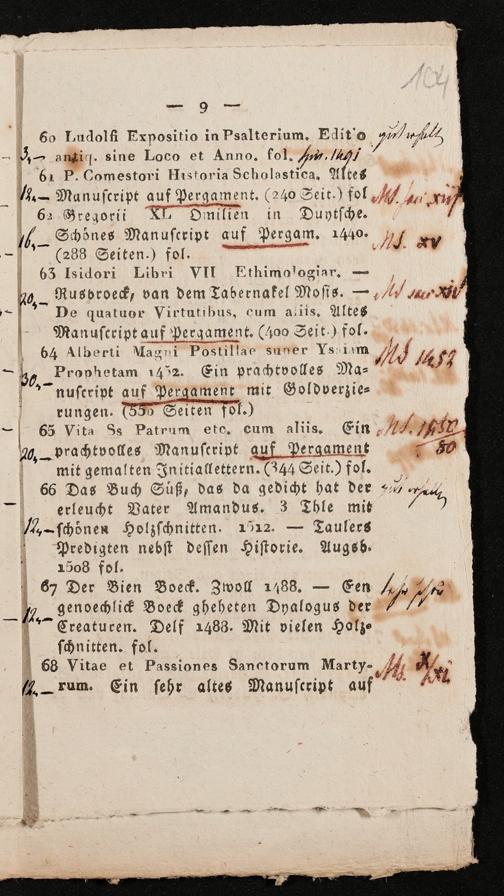 104
— 9 —
60 Ludolfi Expositio in Psalterium. Editio gut erhalt
3,— antiq. sine Loco et Anno. fol. 1491
61 P. Comestori Historia Scholastica. Altes
12,— Manuscript auf Pergament. (240 Seit.) fol MS. XIII
62 Gregorii XL Omilien in Duytsche.
16,— Schönes Manuscript auf Pergam. 1440. MS. XV
(288 Seiten.) fol.
63 Isidori Libri VII Ethimologiar. —
20,— Rusbroeck, van dem Tabernakel Mosis. — MS
De quatuor Virtutibus, cum aliis. Altes
Manuscript auf Pergament. (400 Seit.) fol.
64 Alberti Magni Postillae super Ysaiam MS 1452
30,— Prophetam 1452. Ein prachtvolles Ma-
nuscript auf Pergament mit Goldverzie-
rungen. (550 Seiten fol.)
65 Vita Ss Patrum etc. cum aliis. Ein MS. 1450
20,— prachtvolles Manuscript auf Pergament 80
mit gemalten Initiallettern. (344 Seit.) fol.
66 Das Buch Süß, das da gedicht hat der gut erhalten
erleucht Vater Amandus. 3 Thle mit
12,— schönen Holzschnitten. 1512. — Taulers
Predigten nebst dessen Historie. Augsb.
1508 fol.
67 Der Bien Boeck. Zwoll 1488. — Een sehr schön
genoechlick Boeck gheheten Dyalogus der
12,— Creaturen. Delf 1488. Mit vielen Holz-
schnitten. fol.
68 Vitae et Passiones Sanctorum Marty- Ms. X/XI
12,— rum. Ein sehr altes Manuscript auf